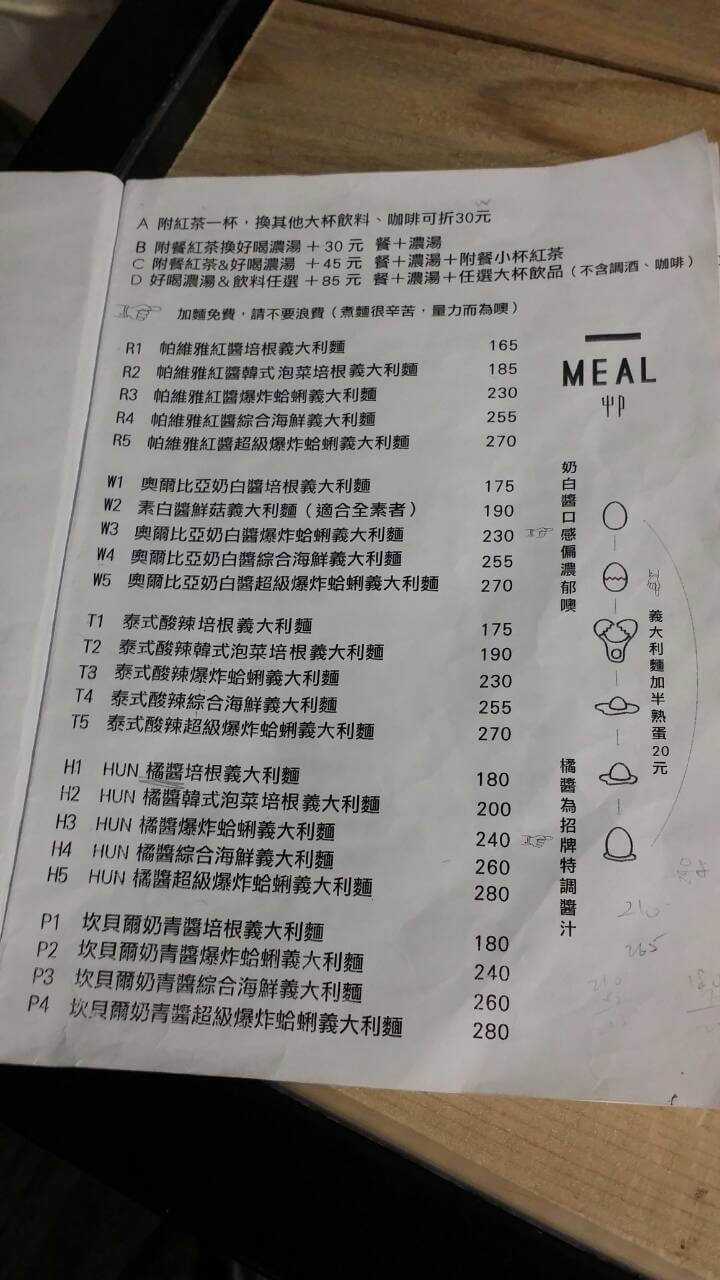 A 附紅茶一杯，換其他大杯飲料、咖啡可折30元
B 附餐紅茶換好喝濃湯 ＋30 元 餐＋濃湯
C 附餐紅茶&好喝濃湯 ＋45 元 餐＋濃湯＋附餐小杯紅茶
D 好喝濃湯&飲料任選 ＋85 元 餐＋濃湯＋任選大杯飲品（不含調酒、咖啡）
加麵免費，請不要浪費（煮麵很辛苦，量力而為噢）
R1 帕維雅紅醬培根義大利麵 165
R2 帕維雅紅醬韓式泡菜培根義大利麵 185
R3 帕維雅紅醬爆炸蛤蜊義大利麵 230
R4 帕維雅紅醬綜合海鮮義大利麵 255
R5 帕維雅紅醬超級爆炸蛤蜊義大利麵 270
MEAL
W1 奧爾比亞奶白醬培根義大利麵 175
W2 素白醬鮮菇義大利麵（適合全素者） 190
W3 奧爾比亞奶白醬爆炸蛤蜊義大利麵 230
W4 奧爾比亞奶白醬綜合海鮮義大利麵 255
W5 奧爾比亞奶白醬超級爆炸蛤蜊義大利麵 270
奶白醬口感偏濃郁噢
T1 泰式酸辣培根義大利麵 175
T2 泰式酸辣韓式泡菜培根義大利麵 190
T3 泰式酸辣爆炸蛤蜊義大利麵 230
T4 泰式酸辣綜合海鮮義大利麵 255
T5 泰式酸辣超級爆炸蛤蜊義大利麵 270
義大利麵加半熟蛋20元
H1 HUN 橘醬培根義大利麵 180
H2 HUN 橘醬韓式泡菜培根義大利麵 200
H3 HUN 橘醬爆炸蛤蜊義大利麵 240
H4 HUN 橘醬綜合海鮮義大利麵 260
H5 HUN 橘醬超級爆炸蛤蜊義大利麵 280
橘醬為招牌特調醬汁
P1 坎貝爾奶青醬培根義大利麵 180
P2 坎貝爾奶青醬爆炸蛤蜊義大利麵 240
P3 坎貝爾奶青醬綜合海鮮義大利麵 260
P4 坎貝爾奶青醬超級爆炸蛤蜊義大利麵 280
210
265
210